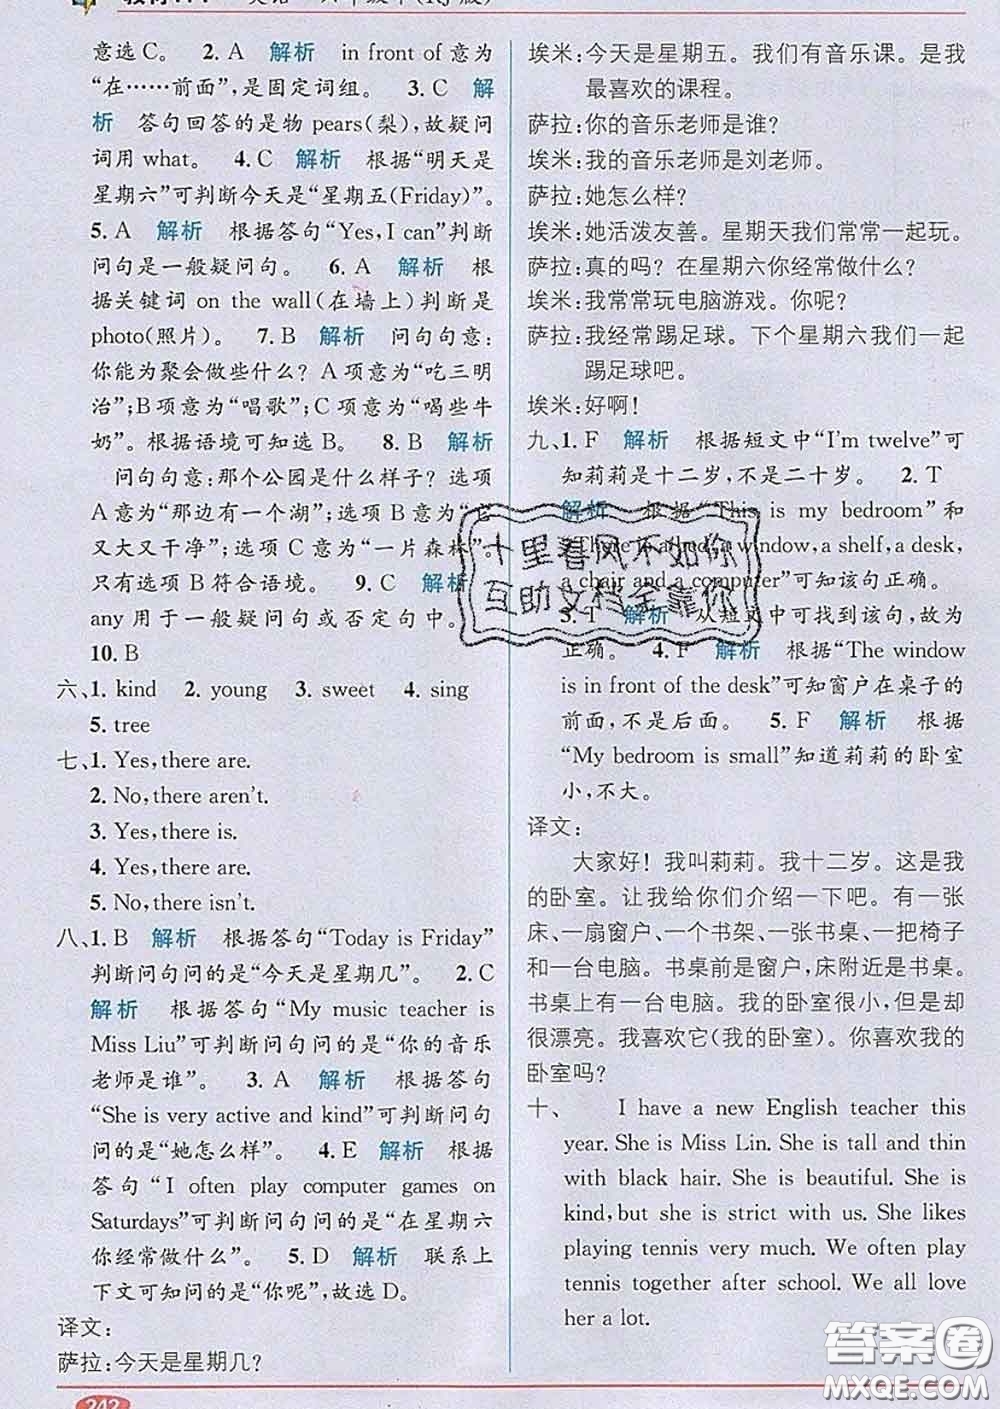 意选C。 2. A 解析 in front of意为
“在……前面”,是固定词组。 3. C 解
析 答句回答的是物 pears(梨),故疑问
词用 what。 4. C 解析 根据“明天是
星期六”可判断今天是“星期五(Friday)”。
5. A 解析 根据答句“Yes, I can”判断
问句是一般疑问句。 6. A 解析 根
据关键词 on the wall(在墙上)判断是
photo(照片)。 7. B 解析 问句句意:
你能为聚会做些什么? A项意为“吃三明
治”;B项意为“唱歌”;C项意为“喝些牛
奶”。根据语境可知选 B。 8. B 解析
问句句意:那个公园是什么样子? 选项
A意为“那边有一个湖”;选项 B意为“它
又大又干净”;选项 C意为“一片森林”。
只有选项 B 符合语境。 9. C 解析
any 用于一般疑问句或否定句中。
10. B
六、1. kind 2. young 3. sweet 4. sing
5. tree
七、1. Yes, there are.
2. No, there aren't.
3. Yes, there is.
4. Yes, there are.
5. No, there isn't.
八、1. B 解析 根据答句“Today is Friday”
判断问句问的是“今天是星期几”。 2. C
解析 根据答句“My music teacher is
Miss Liu”可判断问句问的是“你的音乐
老师是谁”。 3. A 解析 根据答句
“She is very active and kind”可判断问句
问的是“她怎么样”。 4. E 解析 根据
答句“I often play computer games on
Saturdays”可判断问句问的是“在星期六
你经常做什么”。 5. D 解析 联系上
下文可知问的是“你呢”,故选 D。
译文:
萨拉:今天是星期几?
242
埃米:今天是星期五。我们有音乐课。是我
最喜欢的课程。
萨拉:你的音乐老师是谁?
埃米:我的音乐老师是刘老师。
萨拉:她怎么样?
埃米:她活泼友善。星期天我们常常一起玩。
萨拉:真的吗? 在星期六你经常做什么?
埃米:我常常玩电脑游戏。你呢?
萨拉:我经常踢足球。下个星期六我们一起
踢足球吧。
埃米:好啊!
九、1. F 解析 根据短文中“I'm twelve”可
知莉莉是十二岁,不是二十岁。 2. T
解析 根据“This is my bedroom”和
a window, a shelf, a desk,
a chair and a computer”可知该句正确。
3. T 解析 从短文中可找到该句,故为
正确。 4. F 解析 根据“The window
is in front of the desk”可知窗户在桌子的
前面,不是后面。 5. F 解析 根据
“My bedroom is small”知道莉莉的卧室
小,不大。
译文:
大家好! 我叫莉莉。我十二岁。这是我
的卧室。让我给你们介绍一下吧。有一张
床、一扇窗户、一个书架、一张书桌、一把椅子
和一台电脑。书桌前是窗户,床附近是书桌。
书桌上有一台电脑。我的卧室很小,但是却
很漂亮。我喜欢它(我的卧室)。你喜欢我的
卧室吗?
十、 I have a new English teacher this
year. She is Miss Lin. She is tall and thin
with black hair. She is beautiful. She is
kind, but she is strict with us. She likes
playing tennis very much. We often play
tennis together after school. We all love
her a lot.
十里春风不如你
互助文档全靠你
答案圈
MXQE.COM